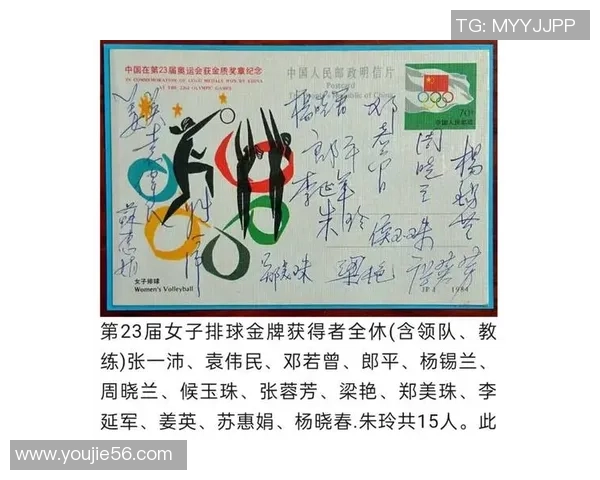 TG: MYYJJPP
中国在第23届奥运会获金质奖章纪念
IN COMMEMORATION OF GOLD MEDALS WON BY CHINA
AT THE 23rd OLYMPIC GAMES
中国人民邮政明信片
Postcard
The People's Republic of China
中国人民邮政
姜英
袁伟民
苏惠娟
张一沛
杨晓君
邓若曾
郎平
李延军
朱玲
周晓兰
杨锡兰
侯玉珠
郑美珠
梁艳
张蓉芳
女子排球
Women's Volleyball
JP 1 1984
第23届女子排球金牌获得者全休(含领队、教
练)张一沛、袁伟民、邓若曾、郎平、杨锡兰、
周晓兰、候玉珠、张蓉芳、梁艳、郑美珠、李
延军、姜英、苏惠娟、杨晓春.朱玲共15人。此
www.youjie56.com